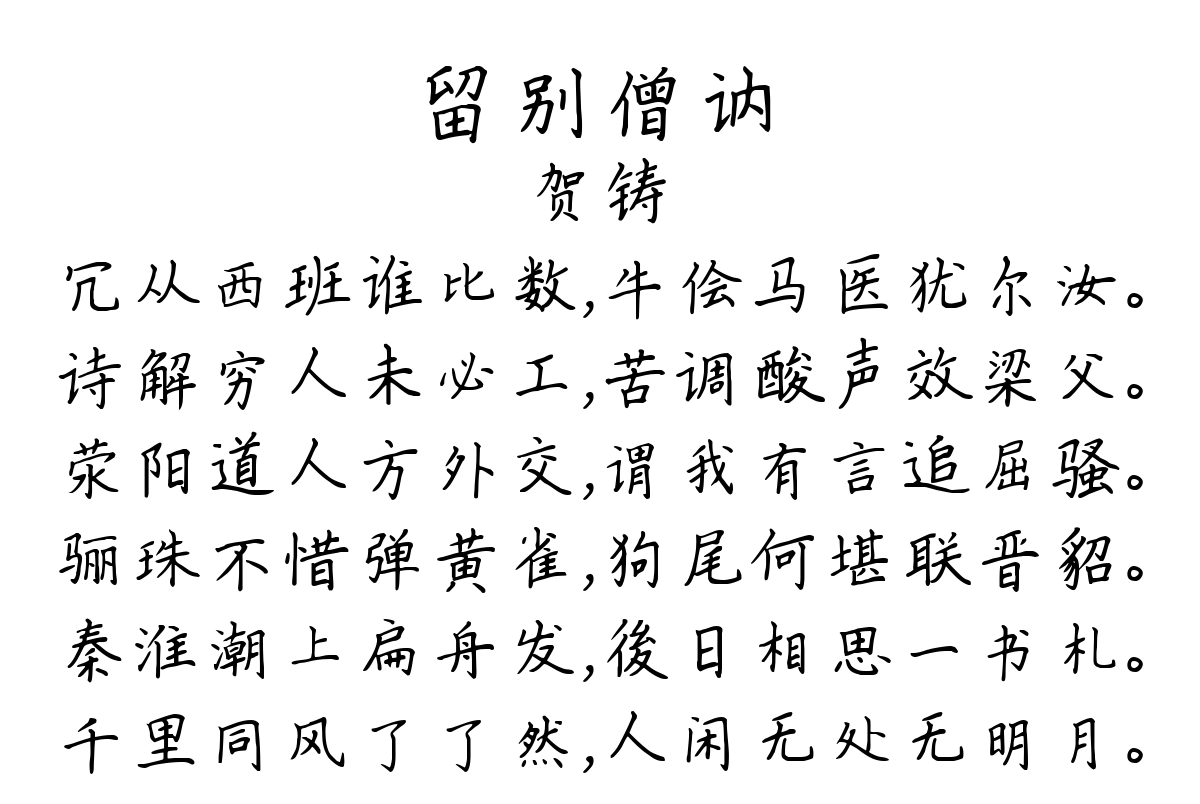 留别僧讷
贺铸
冗从西班谁比数,牛侩马医犹尔汝。
诗解穷人未必工,苦调酸声效梁父。
荥阳道人方外交,谓我有言追屈骚。
骊珠不惜弹黄雀,狗尾何堪联晋貂。
秦淮潮上扁舟发,後日相思一书札。
千里同风了了然,人闲无处无明月。